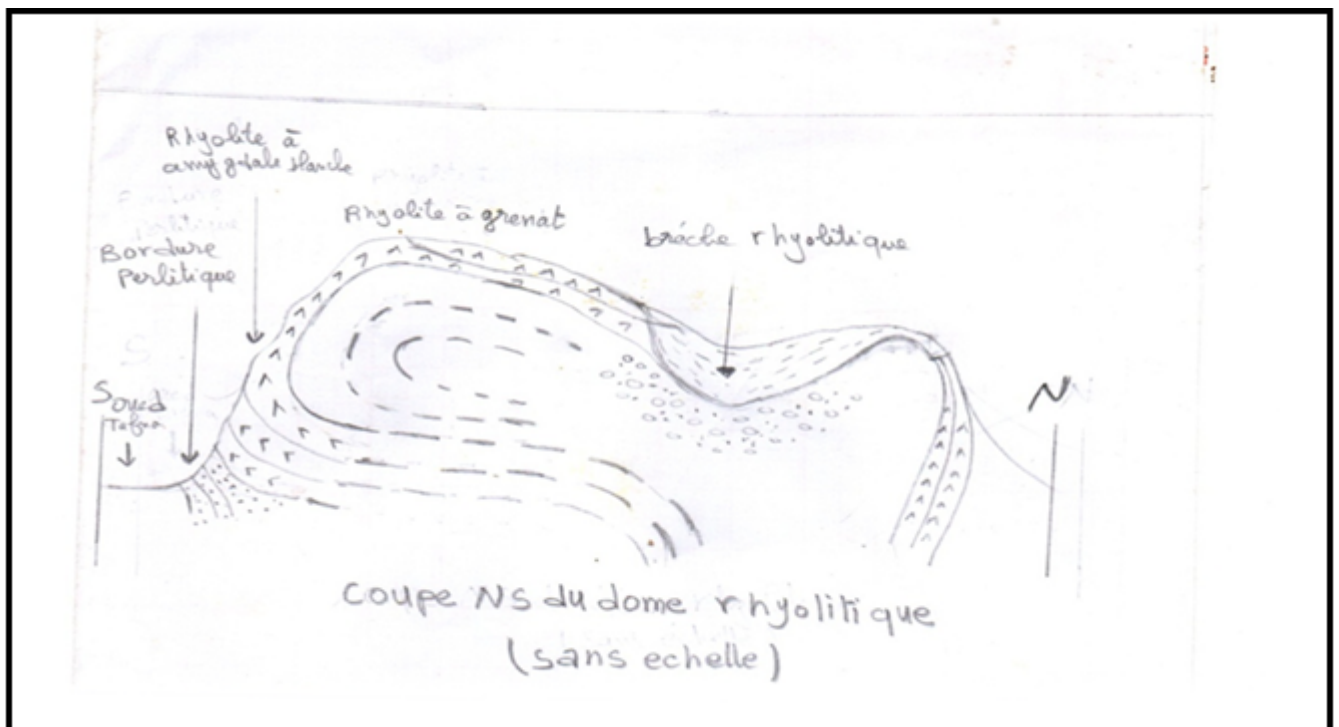 Rhyolite à
amygdale blanche
Rhyolite à grenat
brèche rhyolitique
Bordure
Perlitique
S oued
N
coupe NS du dome rhyolitique
(sans echelle)